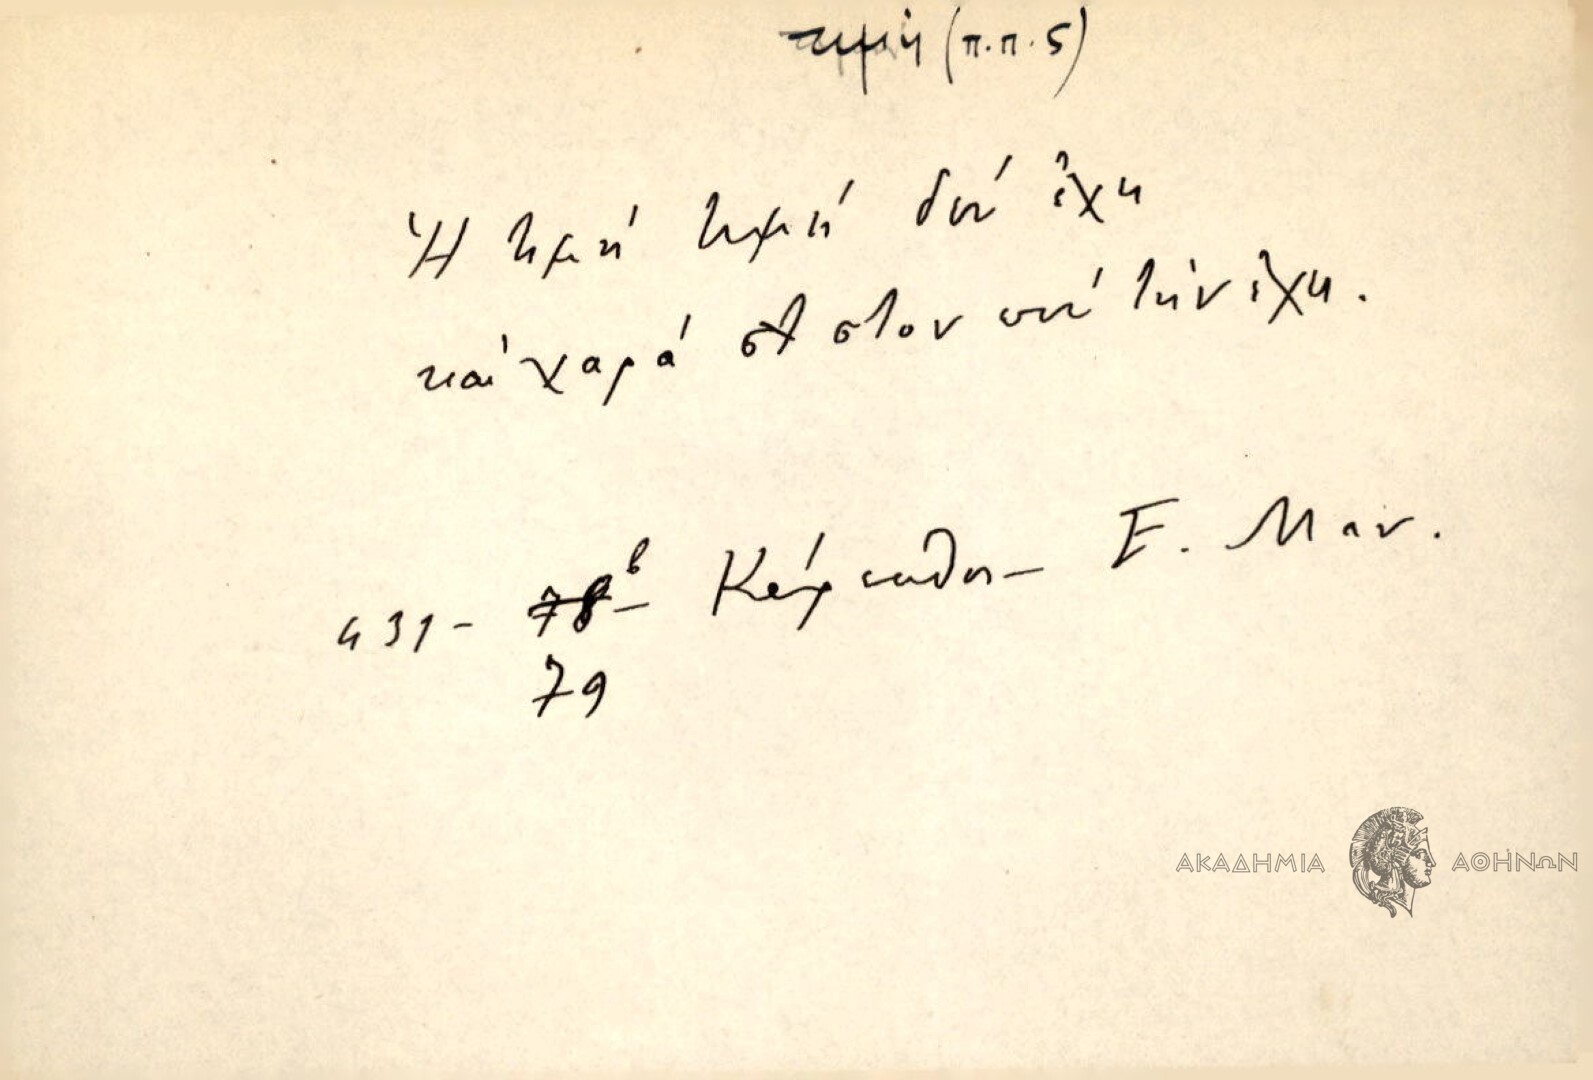 τιμή (π.π. 5)
Ἡ τιμή τιμή δέν ἔχει
καί χαρά στον πού τήν ἔχει.
431 - 78β - Κάρπαθος - Ε. Μαν.
79
ΑΚΑΔΗΜΙΑ ΑΘΗΝΩΝ